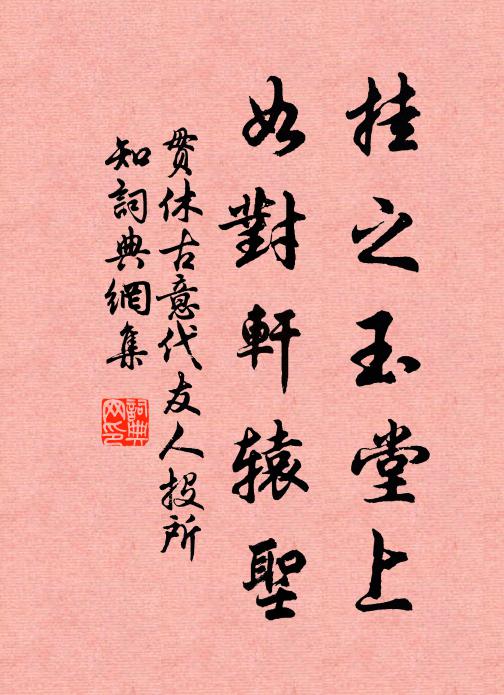 挂之玉堂上
如對軒辕聖
贯休古意代友人投所
知詞典網集
詞典網印